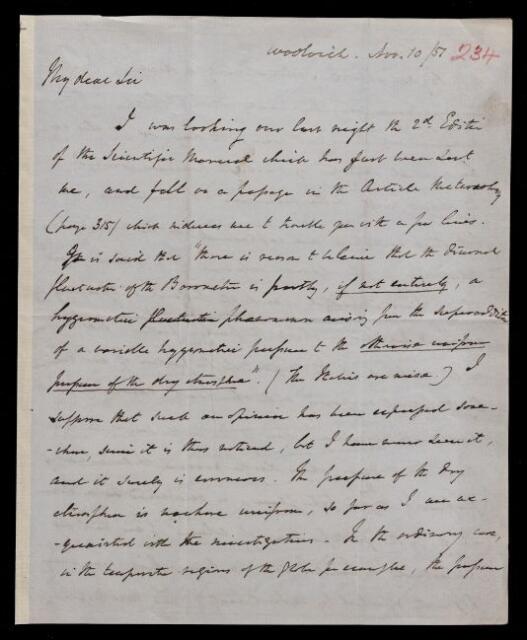 Woolwich. Nov. 10/51 234
My dear Sir
I was looking over last night the 2d. Editn
of the Scientific Manual which has just been sent
me, and fell on a passage in the Article Meteorology
(page 315) which induces me to trouble you with a few lines.
It is said that "there is reason to believe that the diurnal
fluctuation of the Barometer is partly, if not entirely, a
hygrometric fluctuation phaenomenon arising from the superaddition
of a variable hygrometric pressure to the otherwise uniform
pressure of the dry atmosphere". (The Italics are mine.) I
suppose that such an opinion has been expressed some-
-where, since it is thus noticed, but I have never seen it,
and it surely is erroneous. The pressure of the dry
atmosphere is nowhere uniform, so far as I am ac-
-quainted with the investigations. In the ordinary case,
in the temperate regions of the globe for example, the pressure